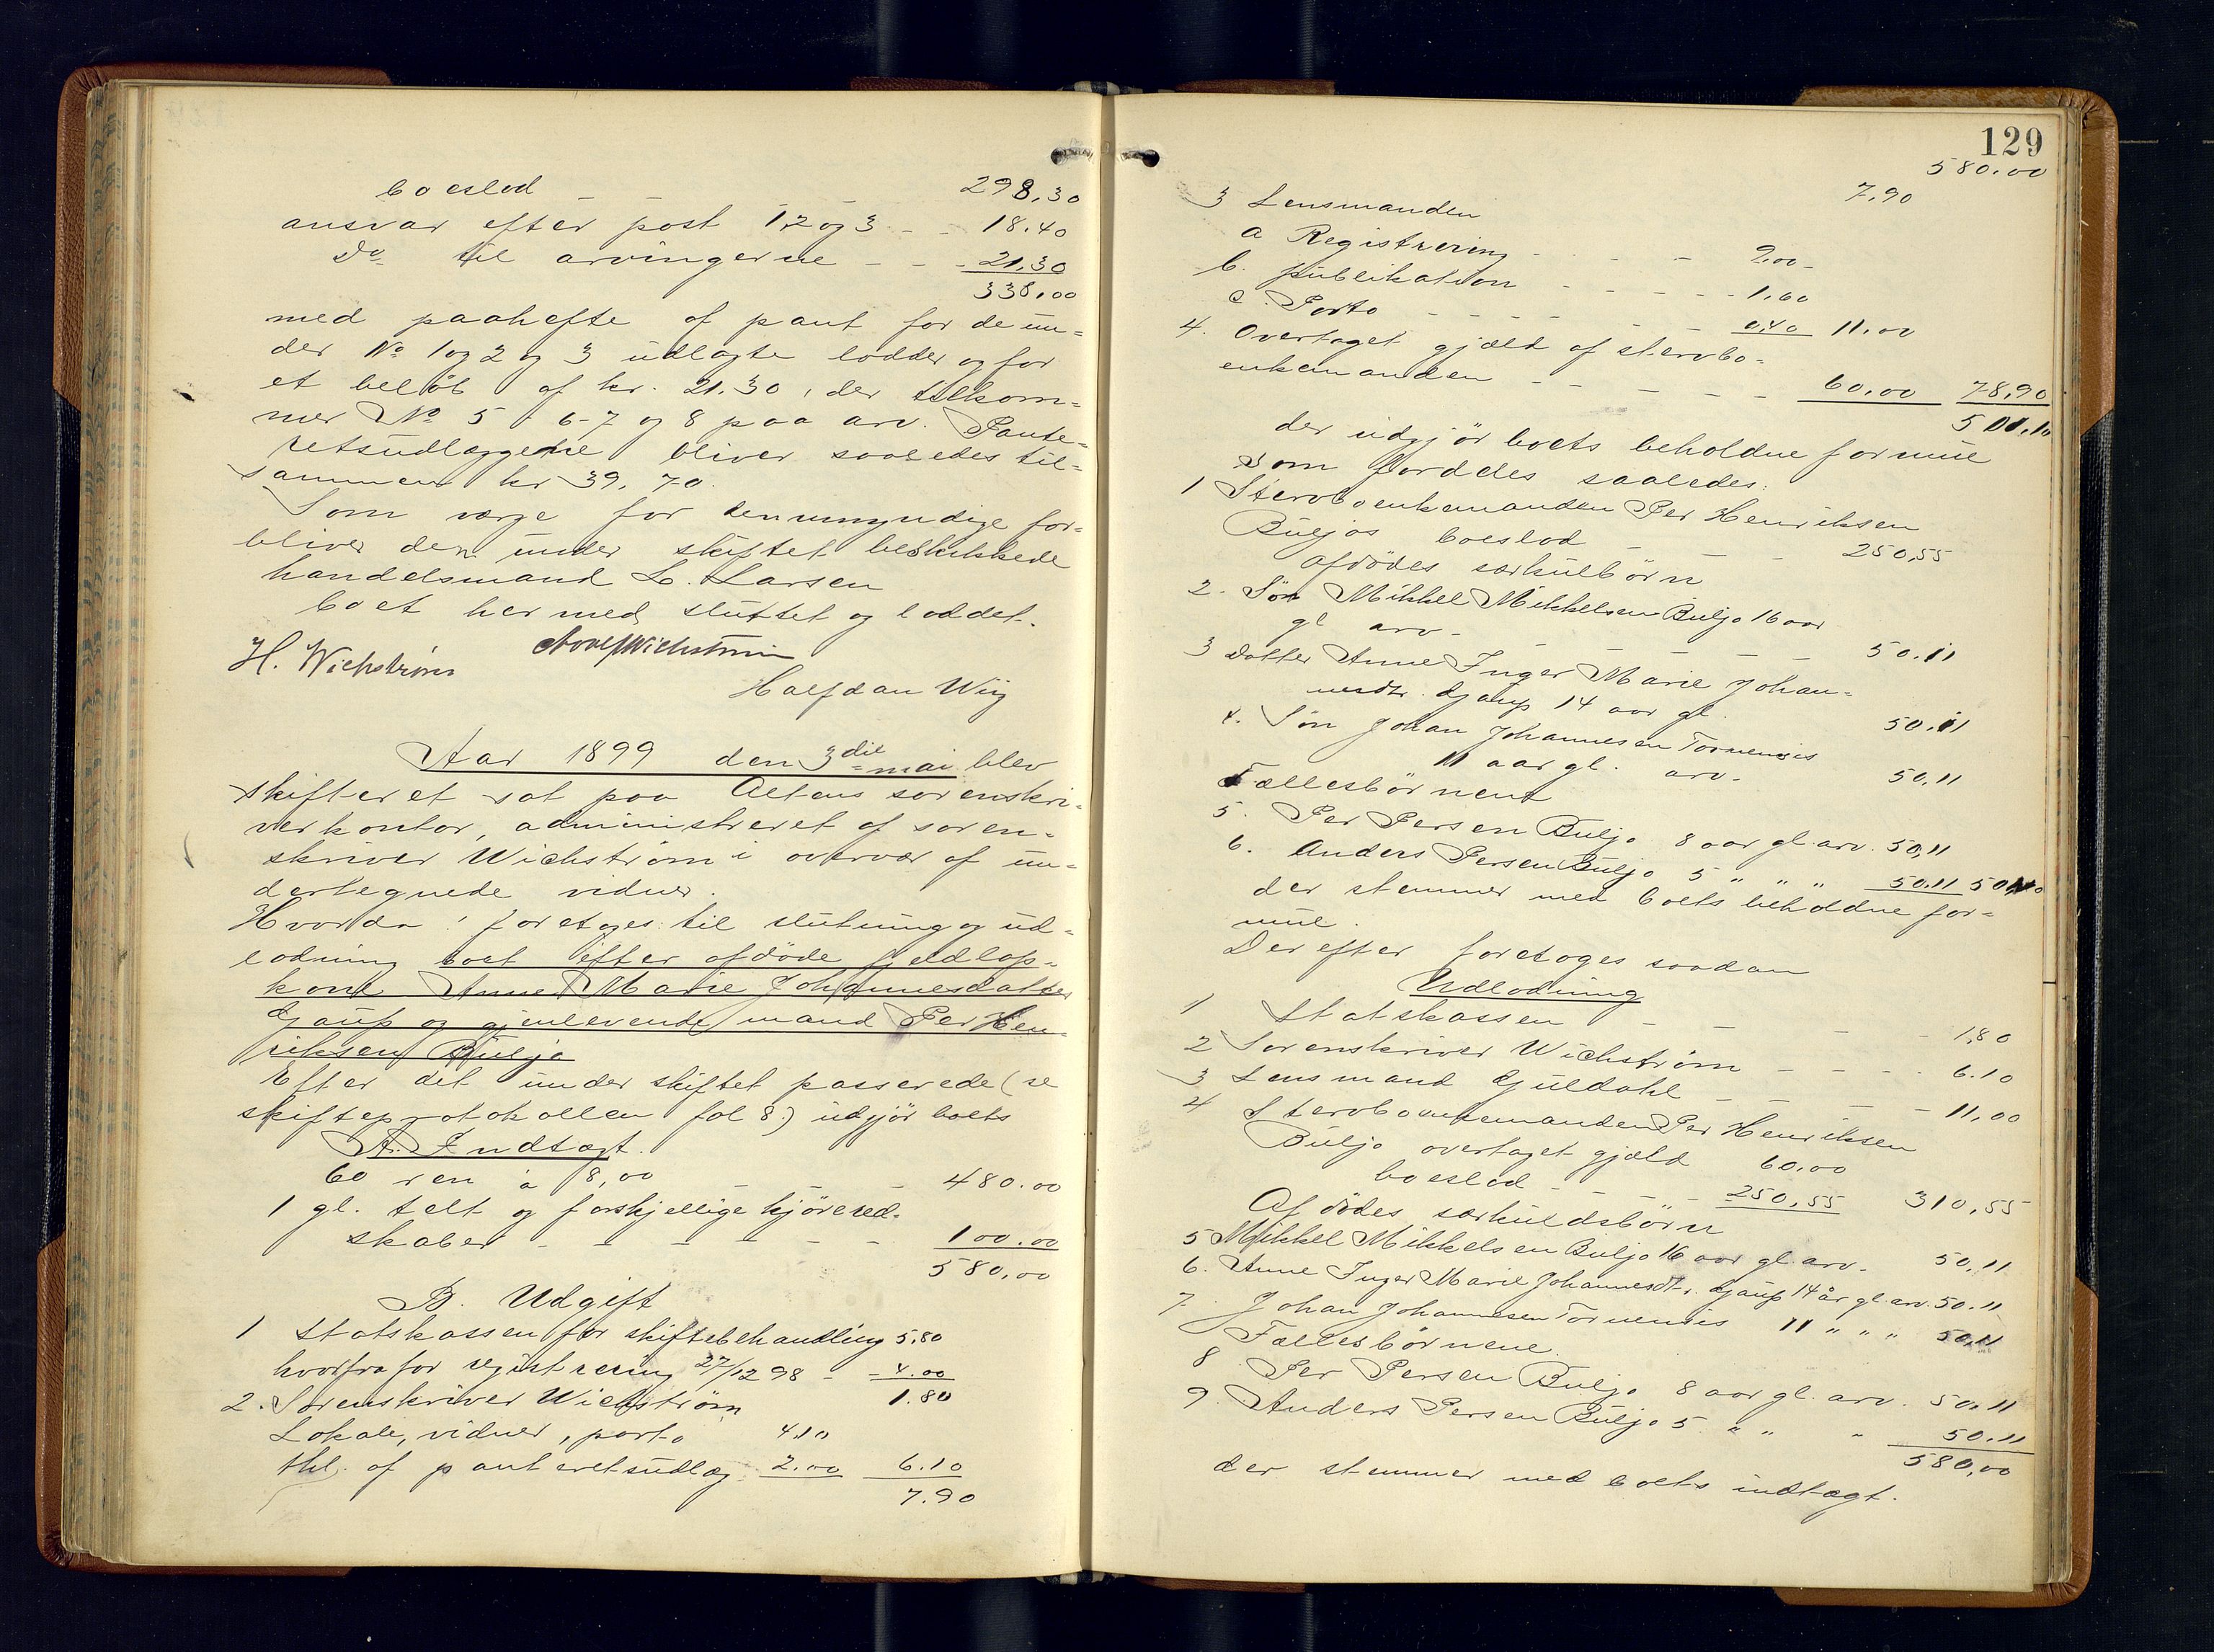 boeslod - 298.30
ansvar efter post 1,2 og 3 - - 18.40
Do til arvingerne - - - 21.30
338.00
med paahefte af pant for de un=
der No 1 og 2 og 3 udlagte lodder og for
et beløb af kr. 21.30, der tilkom=
mer No 5 6-7 og 8 paa arv. Pante=
retsudlæggene bliver saaledes til=
sammen kr 39.70.
Som værge for den umyndige for=
bliver den under skiftet beskikkede
handelsmand L. Larsen
boet hermed sluttet og loddet.
H. Wichstrøm Adolf Wichstrøm
Halfdan Wiig
Aar 1899 den 3die mai blev
skifteret sat paa Altens sorenskri=
verkontor, administreret af soren=
skriver Wichstrøm i overvær af un=
dertegnede vidner.
Hvorda: foretoges: til slutning og ud=
lodning boet efter afdøde fjeldlap=
kone Anne Marie Johannesdatter
Gaup og gjenlevende mand Per Hen=
riksen Buljo
Efter det under skiftet passerede (se
skifteprotokollen fol 8) udgjør boets
A. Indtægt.
60 ren à 8,00 - - - 480.00
1 gl. telt og forskjellige kjørered=
skaber - - - - - 100.00
580,00
B. Udgift
1 Statskassen for skiftebehandling 5.80
hvorfra for registrering 27/12 98 - - 4.00
1.80
2. Sorenskriver Wichstrøm
Lokale, vidner, porto 4.10
thl. af panteretsudlæg 2.00 6.10
7.90
129
580.00
7,90
3 Lensmanden
a Registrering - - - - 9.00 -
b. publikation - - - - - 1.60
c. Porto - - - - - - 0.40 11.00
4. Overtaget gjæld af stervbo=
enkemanden - - - - - 60.00 78,90
501,10
der udgjør boets beholdne formue
som fordeles saaledes:
1 Stervboenkemanden Per Henriksen
Buljos boeslod - - - 250,55
afdødes særkulbørn
2. Søn Mikkel Mikkelsen Buljo 16 aar
gl arv - - - - - 50.11
3 datter Anne Inger Marie Johan=
nesdtr. Gaup 14 aar gl. 50.11
4. Søn Johan Johannesen Tornensis
11 aar gl. arv. 50,11
Fællesbørnene
5. Per Persen Buljo 8 aar gl. arv. 50,11
6. Anders Persen Buljo 5 " " " 50.11 501,10
der stemmer med boets beholdne for=
mue.
Derefter foretoges saadan
Udlodning
1 Statskassen - - - - 1,80
2 Sorenskriver Wichstrøm - - - - 6.10
3 Lensmand Guldahl - - - - 11,00
4 Stervboenkemanden Per Henriksen
Buljo overtaget gjæld 60.00
boeslod - - - - 250,55 310,55
Afdødes særkuldsbørn
5 Mikkel Mikkelsen Buljo 16 aar gl. arv. 50,11
6. Anne Inger Marie Johannesdtr. Gaup 14 år gl. arv. 50.11
7. Johan Johannesen Tornensis 11 " " " 50,11
Fællesbørnene.
8 Per Persen Buljo 8 aar gl. arv. 50.11
9. Anders Persen Buljo 5 " " " 50.11
580,00
der stemmer med boets indtægt.